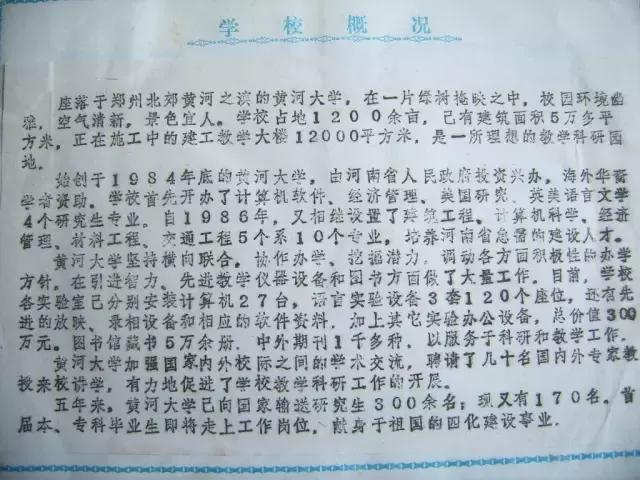 学校概况
座落于郑州北郊黄河之滨的黄河大学，在一片绿树掩映之中，校园环境幽
雅，空气清新，景色宜人。学校占地1200余亩，已有建筑面积5万多平
方米，正在施工中的建工教学大楼12000平方米，是一所理想的教学科研园
地。
始创于1984年底的黄河大学，由河南省人民政府投资兴办，海外华裔
学者资助。学校首先开办了计算机软件、经济管理、美国研究、英美语言文学
4个研究生专业。自1986年，又相继设置了建筑工程、计算机科学、经济
管理、材料工程、交通工程5个系10个专业，培养河南省急需的建设人才。
黄河大学坚持横向联合，协作办学、挖掘潜力，调动各方面积极性的办学
方针。在引进智力、先进教学仪器设备和图书方面做了大量工作。目前，学校
各实验室已分别安装计算机27台，语言实验设备3套120个座位，还有先
进的放映、录相设备和相应的软件资料，加上其它实验办公设备，总价值300
万元。图书馆藏书5万余册，中外期刊1千多种，以服务于科研和教学工作。
黄河大学加强国家内外校际之间的学术交流，聘请了几十名国内外专家教
授来校讲学，有力地促进了学校教学科研工作的开展。
五年来，黄河大学已向国家输送研究生300余名；现又有170名。首
届本、专科毕业生即将走上工作岗位，献身于祖国的四化建设事业。